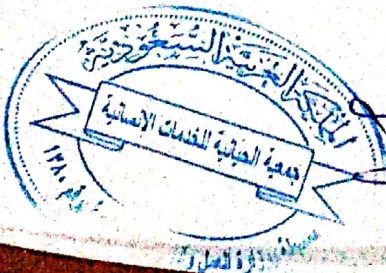 المملكة العربية السعودية
جمعية الضيائية للخدمات الانسانية
رقم ١٣٨٠